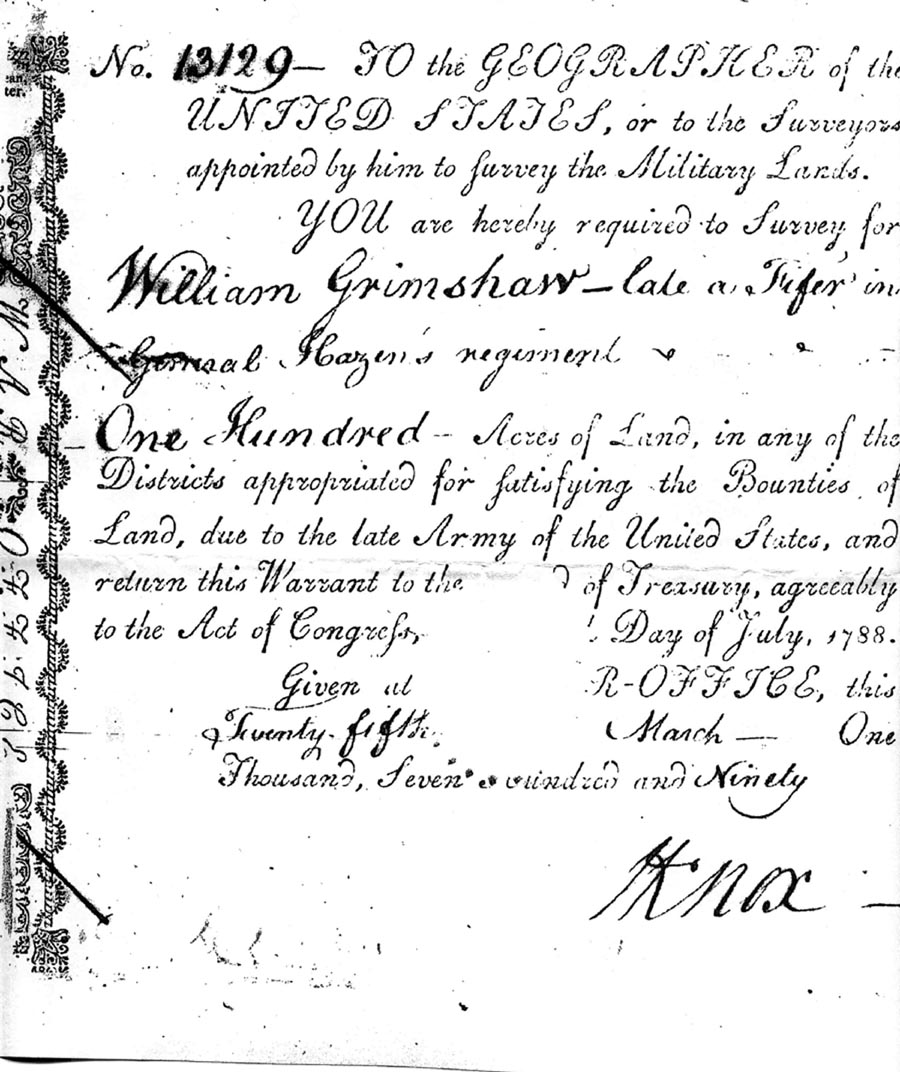 No. 13129— TO the GEOGRAPHER of the
UNITED STATES, or to the Surveyors
appointed by him to survey the Military Lands.
YOU are hereby required to Survey for
William Grimshaw — late a Fifer in
General Hazen's regiment
One Hundred — Acres of Land, in any of the
Districts appropriated for satisfying the Bounties of
Land, due to the late Army of the United States, and
return this Warrant to the d of Treasury, agreeably
to the Act of Congress, Day of July, 1788.
Given at R-OFFICE, this
Twenty fifth March — One
Thousand, Seven Hundred and Ninety
HKnox —